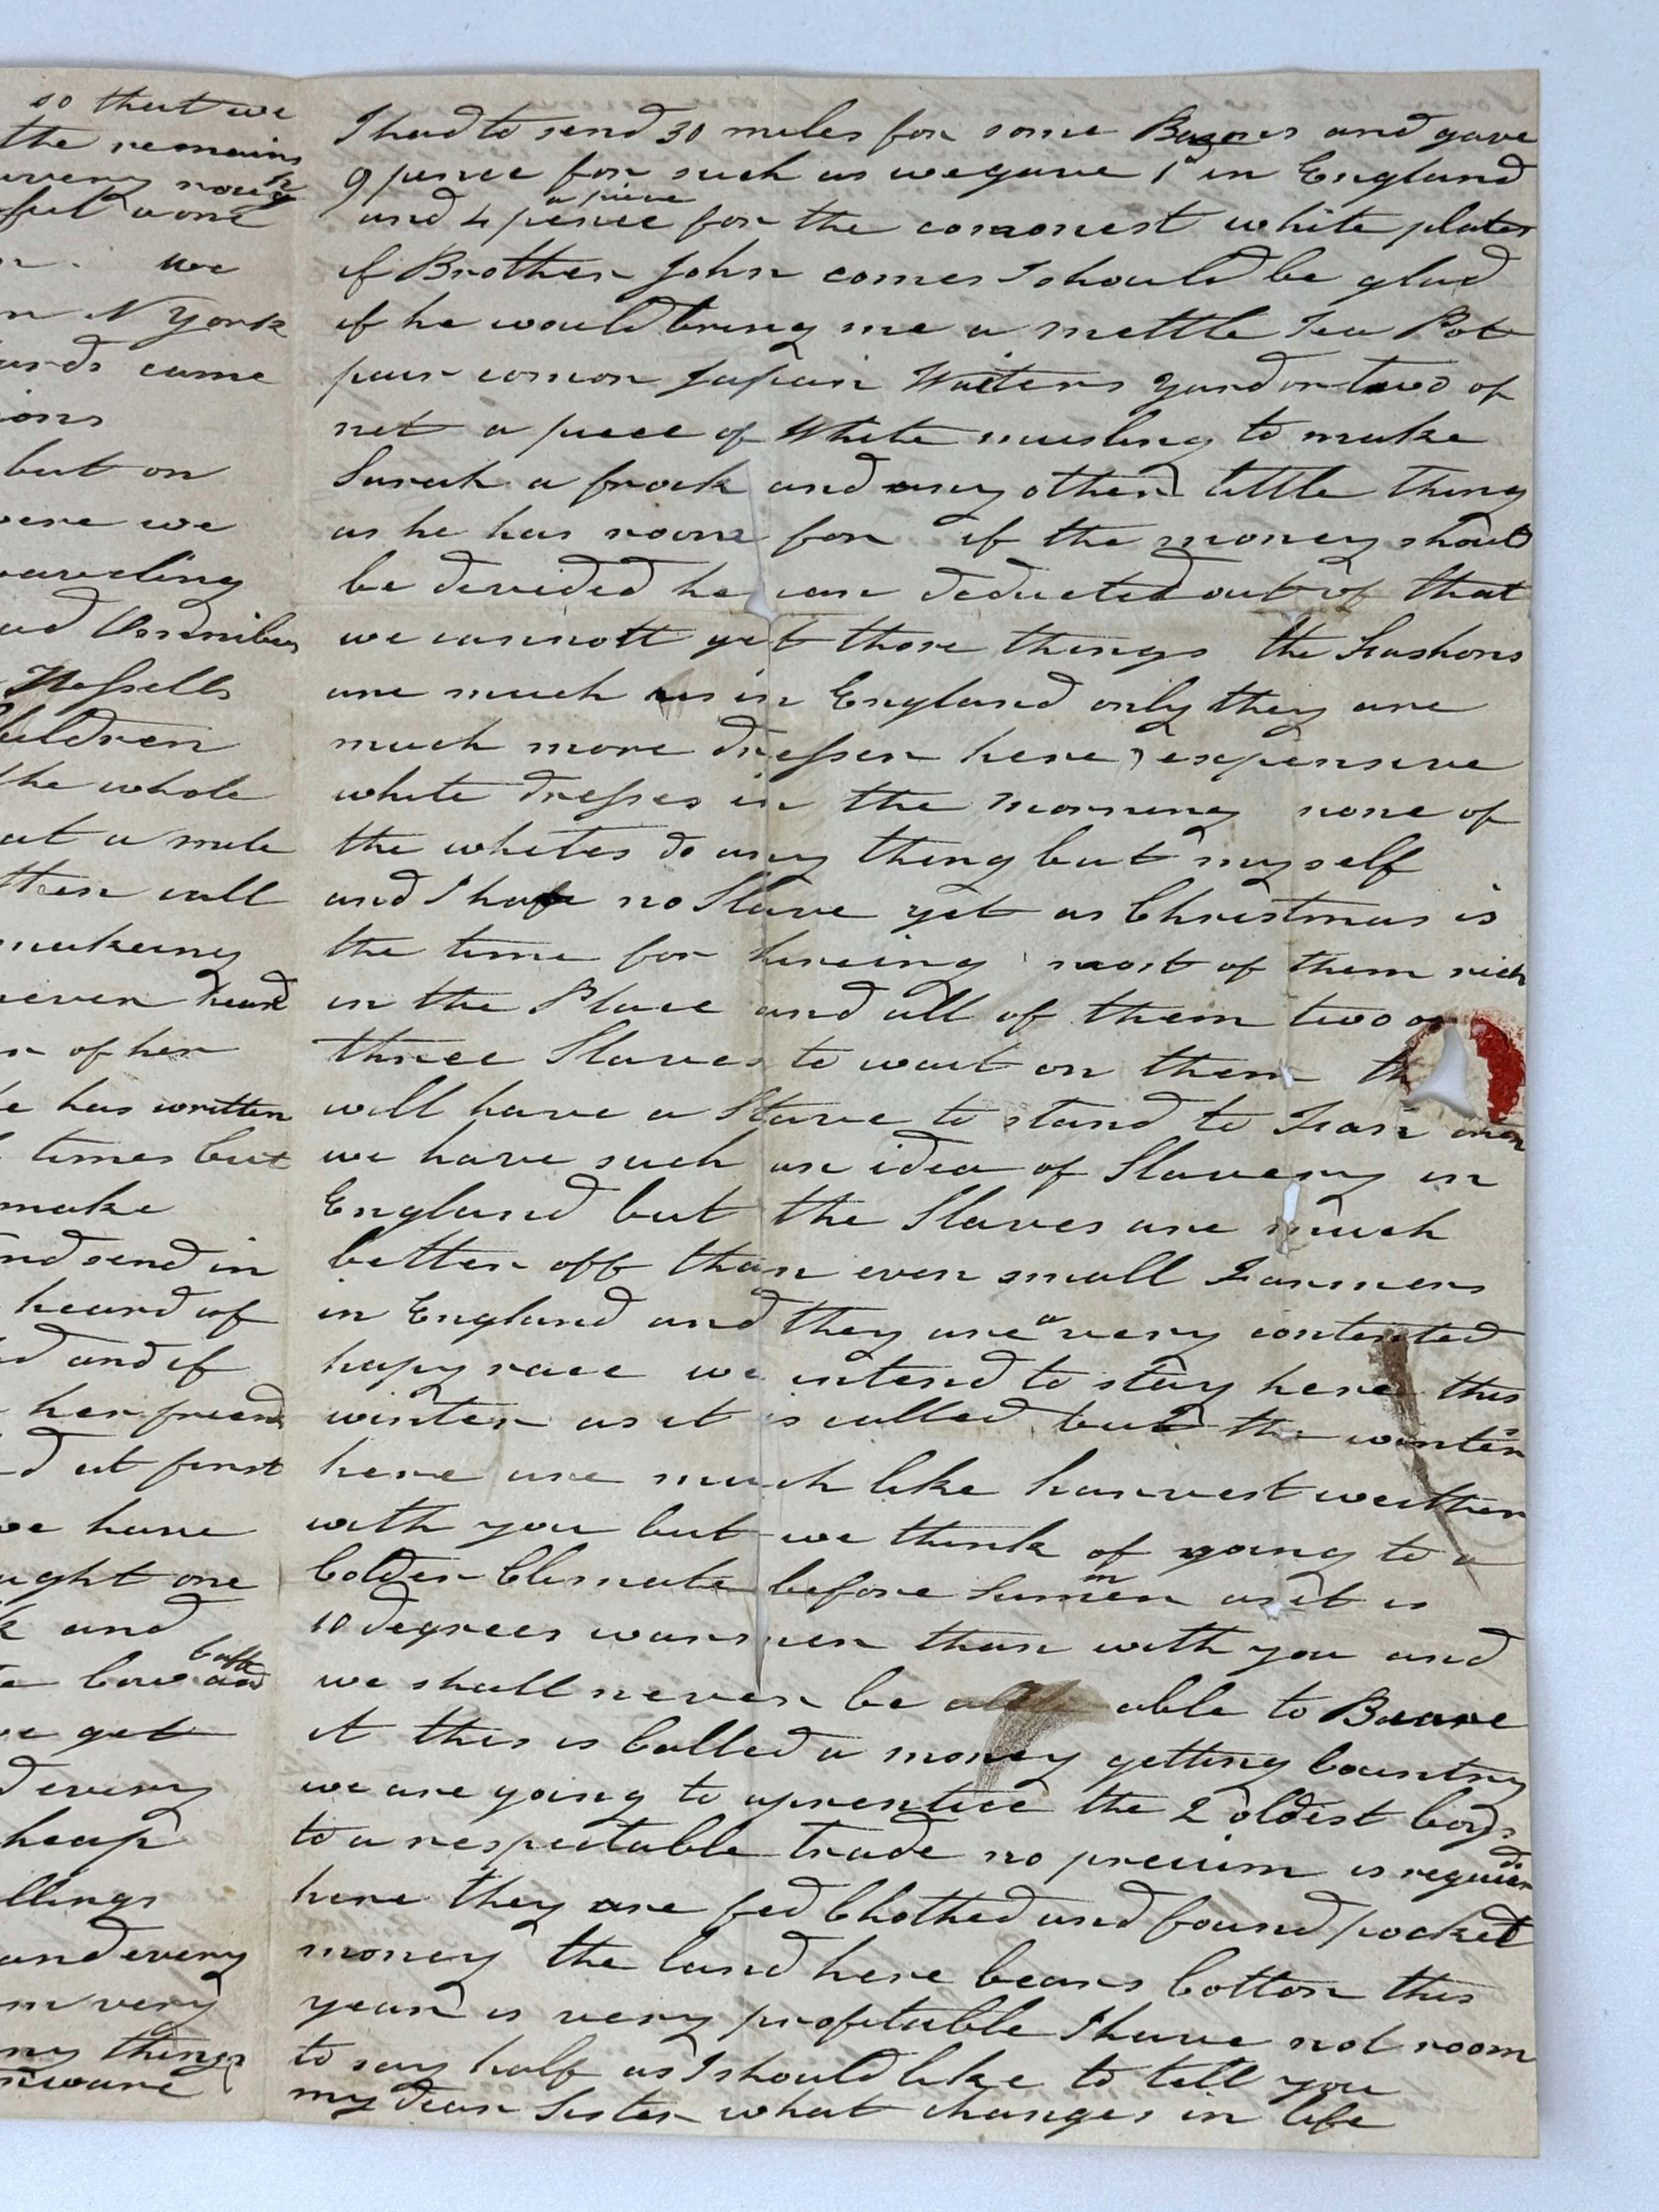 so that we
the remains
very rough
felt wone
we
n N York
ards came
ions
but on
were we
traveling
Hessells
hildren
the whole
at a mile
then call
makeing
never heard
of her
he has written
times but
make
nd send in
heard of
d and if
her friend
d at first
we have
ught one
k and
both
Cow and
we get
d every
heap
llings
and every
m very
my things
nware
I had to send 30 miles for some Basones and gave
9 pence for such as we gave 1d in England
a piece
and 4 pence for the comonest white plates
if Brother John comes I should be glad
if he would bring me a mettle Tea Pot
pair comon Japain Waiters yard or two of
net a piece of White musling to make
Sarah a frock and any other little thing
as he has room for if the money should
be devided he can deducted out of that
we cannott get those things the Fashons
are much as in England only they are
much more dresser here expensive
white dresses in the Morning none of
the whites do any thing but my self
and I have no Slave yet as Christmas is
the time for hireing most of them rich
in the Place and all of them two or
three Slaves to wait on them th
will have a Slave to stand to Fan them
we have such an idea of Slavery in
England but the Slaves are much
better off than even small Farmers
in England and they are a very contented
hapy race we intend to stay here this
winter as it is called but the winters
here are much like harvest weather
with you but we think of going to a
Colder Climate before Summer as it is
10 degrees warmer than with you and
we shall never be able to Beare
it this is Called a money getting Country
we are going to aprentice the 2 oldest boys
to a respectable trade no preium is requierd
here they are fed Clothed and found pocket
money the land here bears Cotton this
year is very profitable I have not room
to say half as I should like to tell you
my dear Sister what changes in life